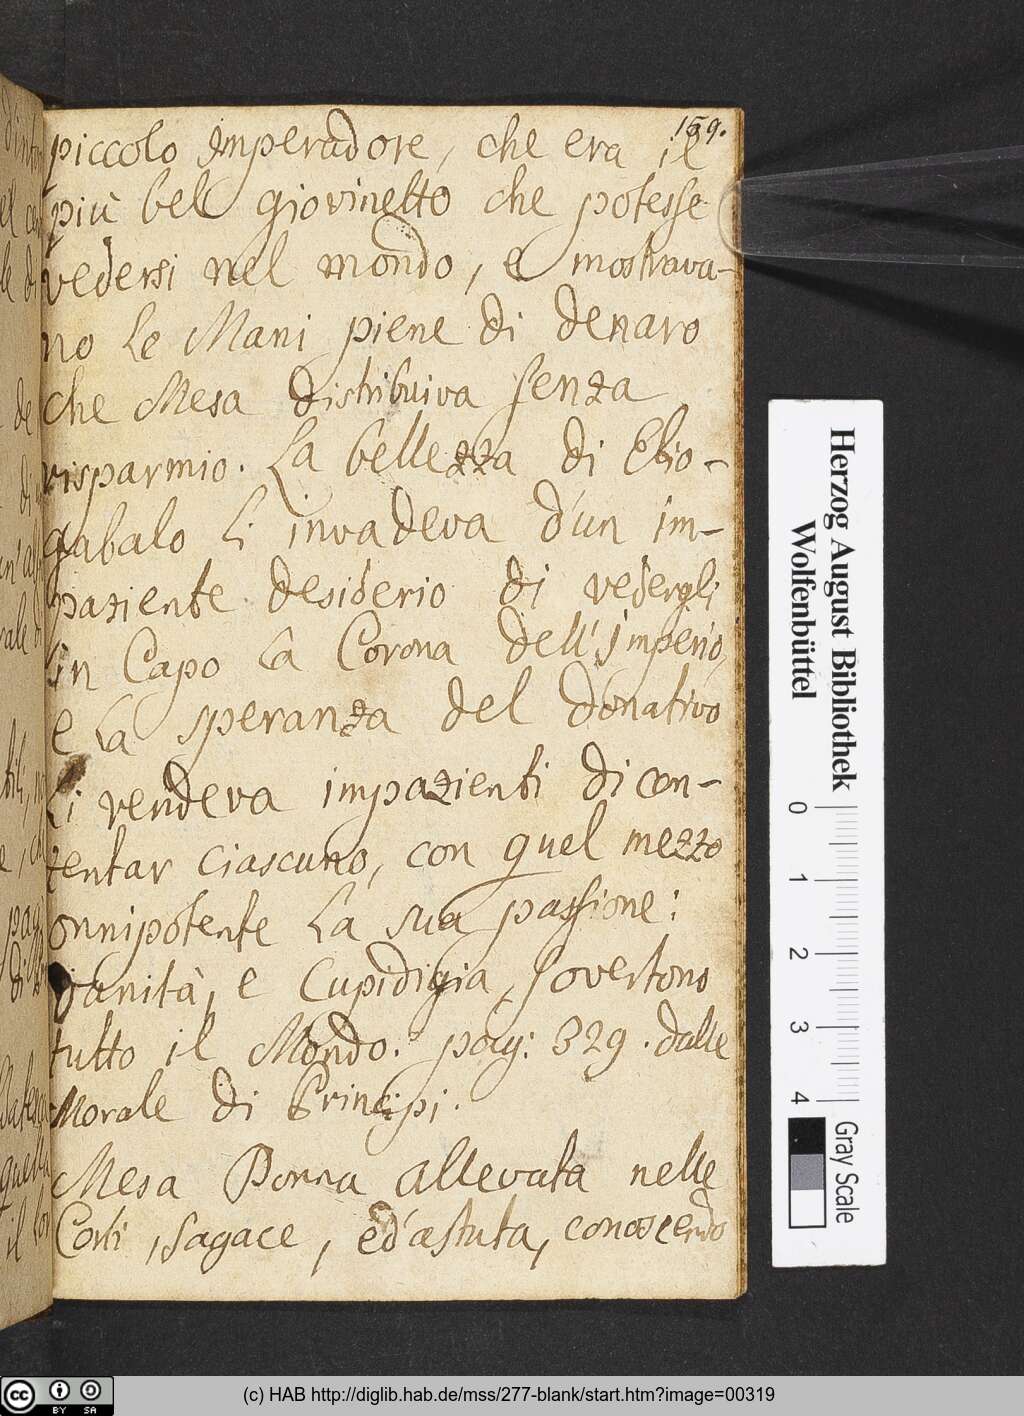 159.
piccolo Imperadore, che era il
più bel giovinetto che potesse
vedersi nel mondo, e mostrava-
no le Mani piene di denaro
che Mesa distribuiva senza
risparmio. La bellezza di Elio-
gabalo li invadeva d'un im-
paziente desiderio di vedergli
in Capo la Corona dell'Imperio,
e la speranza del donativo
li rendeva impazienti di con-
tentar ciascuno, con quel mezzo
onnipotente la sua passione:
Vanità, e Cupidigia, sovertono
tutto il Mondo. pag: 329. dalle
Morale di Principi.
Mesa Donna allevata nelle
Corti, sagace, ed'astuta, conoscendo
Herzog August Bibliothek
Wolfenbüttel
0 1 2 3 4
Gray Scale
(c) HAB http://diglib.hab.de/mss/277-blank/start.htm?image=00319
cc BY SA